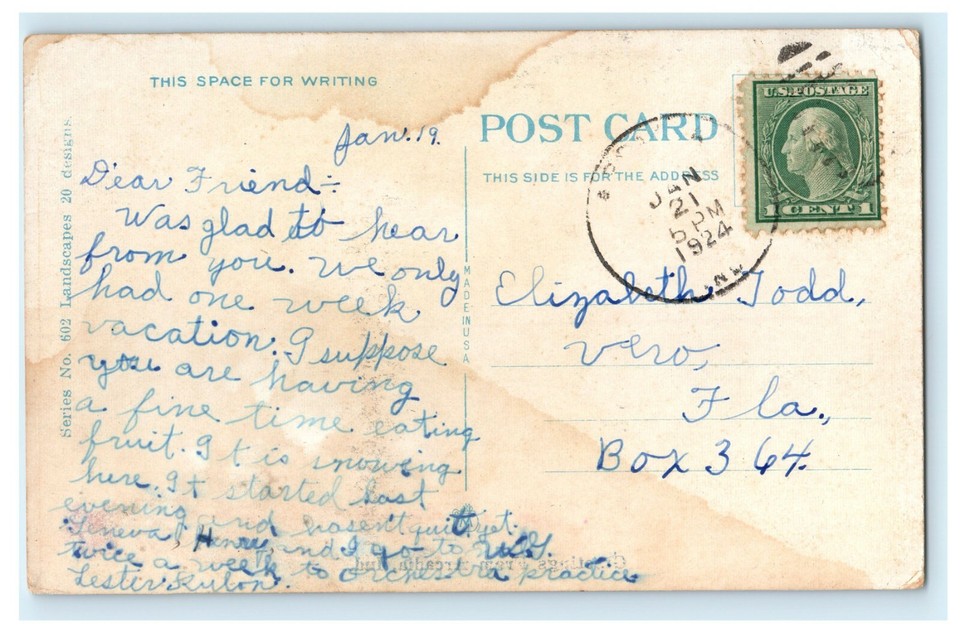 THIS SPACE FOR WRITING
Jan. 19.
Dear Friend:-
Was glad to hear
from you. We only
had one week
vacation. I suppose
you are having
a fine time eating
fruit. It is snowing
here. It started last
evening and hasen't quit yet.
Geneva, Henry, and I go to
twice a week to orchestra practice
Lester
Series No. 602 Landscapes 20 designs.
MADE IN USA
POST CARD
THIS SIDE IS FOR THE ADDRESS
JAN
21
5 PM
1924
U.S. POSTAGE
1 CENT 1
Elizabeth Todd,
Vero,
Fla.,
Box 364.
Greetings from Arcadia, Ind.